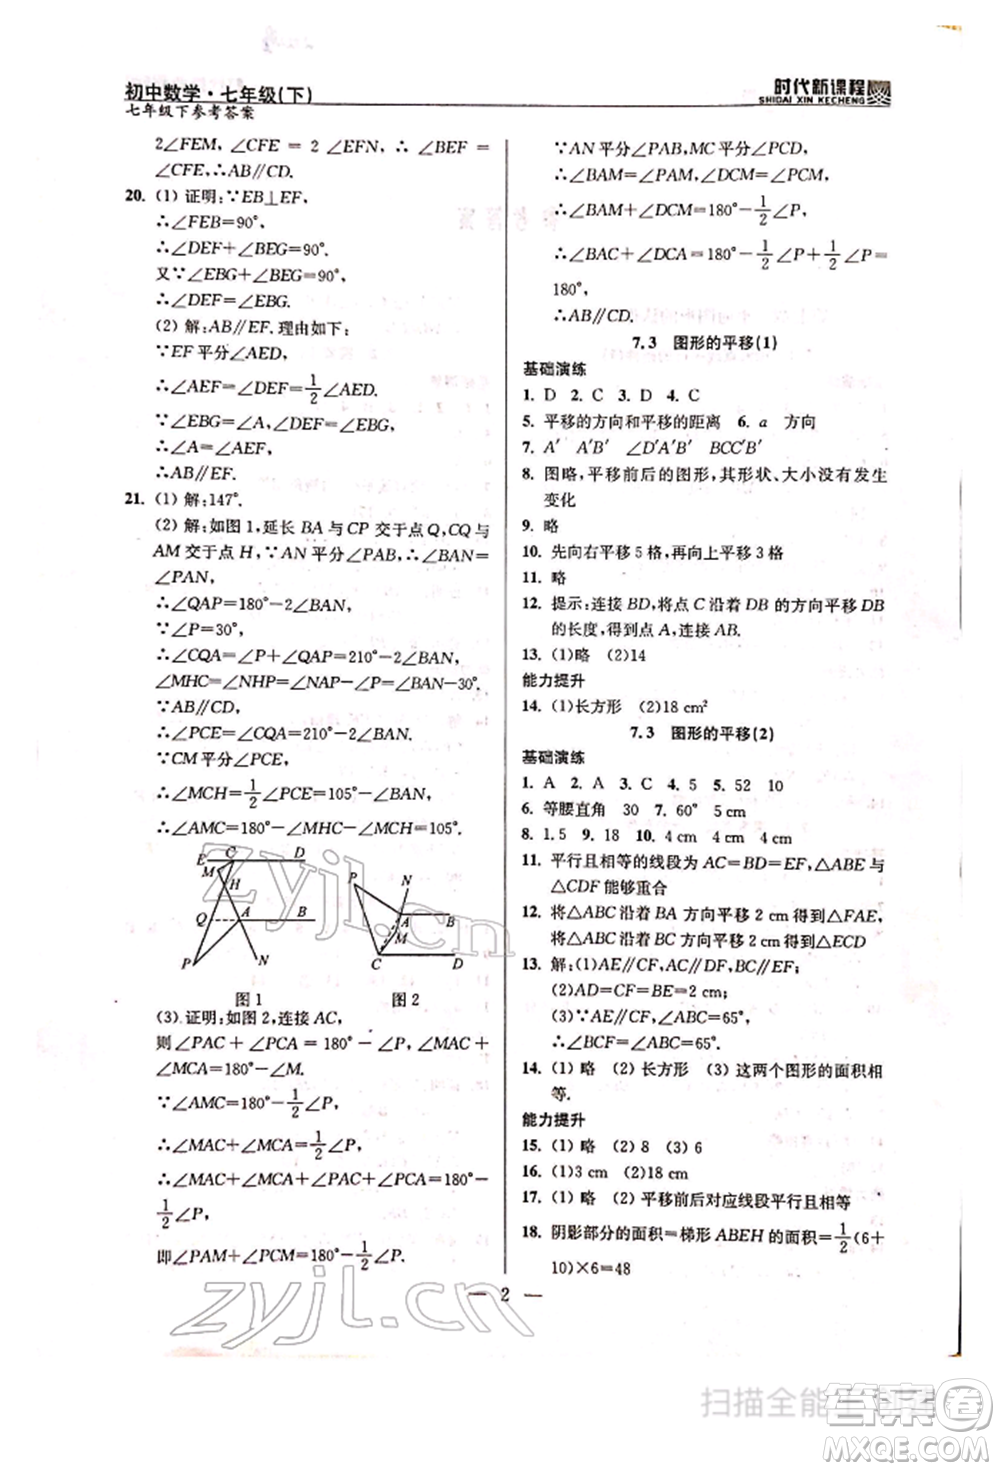 初中数学·七年级(下)
七年级下参考答案
时代新课程
SHIDAI XIN KECHENG
2∠FEM, ∠CFE = 2 ∠EFN, ∴ ∠BEF =
∠CFE,∴AB∥CD.
20. (1) 证明:∵EB⊥EF,
∴∠FEB=90°.
∴∠DEF+∠BEG=90°.
又∵∠EBG+∠BEG=90°,
∴∠DEF=∠EBG.
(2) 解:AB∥EF.理由如下:
∵EF平分∠AED,
∴∠AEF=∠DEF=1/2∠AED.
∵∠EBG=∠A,∠DEF=∠EBG,
∴∠A=∠AEF.
∴AB∥EF.
21. (1) 解:147°.
(2) 解:如图1,延长BA与CP交于点Q,CQ与
AM交于点H,∵AN平分∠PAB,∴∠BAN=
∠PAN,
∴∠QAP=180°-2∠BAN,
∵∠P=30°,
∴∠CQA=∠P+∠QAP=210°-2∠BAN,
∠MHC=∠NHP=∠NAP-∠P=∠BAN-30°.
∵AB∥CD,
∴∠PCE=∠CQA=210°-2∠BAN,
∵CM平分∠PCE,
∴∠MCH=1/2∠PCE=105°-∠BAN,
∴∠AMC=180°-∠MHC-∠MCH=105°.
E C D
M
H
Q A B
P N
图1
P N
A B
M
C D
图2
(3)证明:如图2,连接AC,
则∠PAC+∠PCA=180°-∠P,∠MAC+
∠MCA=180°-∠M.
∵∠AMC=180°-1/2∠P,
∴∠MAC+∠MCA=1/2∠P,
∴∠MAC+∠MCA+∠PAC+∠PCA=180°-
1/2∠P,
即∠PAM+∠PCM=180°-1/2∠P.
∵AN平分∠PAB,MC平分∠PCD,
∴∠BAM=∠PAM,∠PCM=∠DCM,
∴∠BAM+∠DCM=180°-1/2∠P,
∴∠BAC+∠DCA=180°-1/2∠P+1/2∠P=
180°,
∴AB∥CD.
7.3 图形的平移(1)
基础演练
1. D 2. C 3. D 4. C
5. 平移的方向和平移的距离 6. a 方向
7. A′ A′B′ ∠D′A′B′ BCC′B′
8. 图略,平移前后的图形,其形状、大小没有发生
变化
9. 略
10. 先向右平移5格,再向上平移3格
11. 略
12. 提示:连接BD,将点C沿着DB的方向平移DB
的长度,得到点A,连接AB.
13. (1)略 (2)14
能力提升
14. (1)长方形 (2)18 cm²
7.3 图形的平移(2)
基础演练
1. A 2. A 3. C 4. 5 5. 52 10
6. 等腰直角 30 7. 60° 5 cm
8. 1.5 9. 18 10. 4 cm 4 cm 4 cm
11. 平行且相等的线段为AC=BD=EF,△ABE与
△CDF能够重合
12. 将△ABC沿着BA方向平移2 cm得到△FAE,
将△ABC沿着BC方向平移2 cm得到△ECD
13. 解:(1)AE∥CF,AC∥DF,BC∥EF;
(2)AD=CF=BE=2 cm;
(3)∵AE∥CF,∠ABC=65°,
∴∠BCF=∠ABC=65°.
14. (1)略 (2)长方形 (3)这两个图形的面积相
等.
能力提升
15. (1)略 (2)8 (3)6
16. (1)3 cm (2)18 cm
17. (1)略 (2)平移前后对应线段平行且相等
18. 阴影部分的面积=梯形ABEH的面积=1/2(6+
10)×6=48
— 2 —
zyjl.cn
zyjl.cn
扫描全能王 创建
答案卷
MXQE.COM